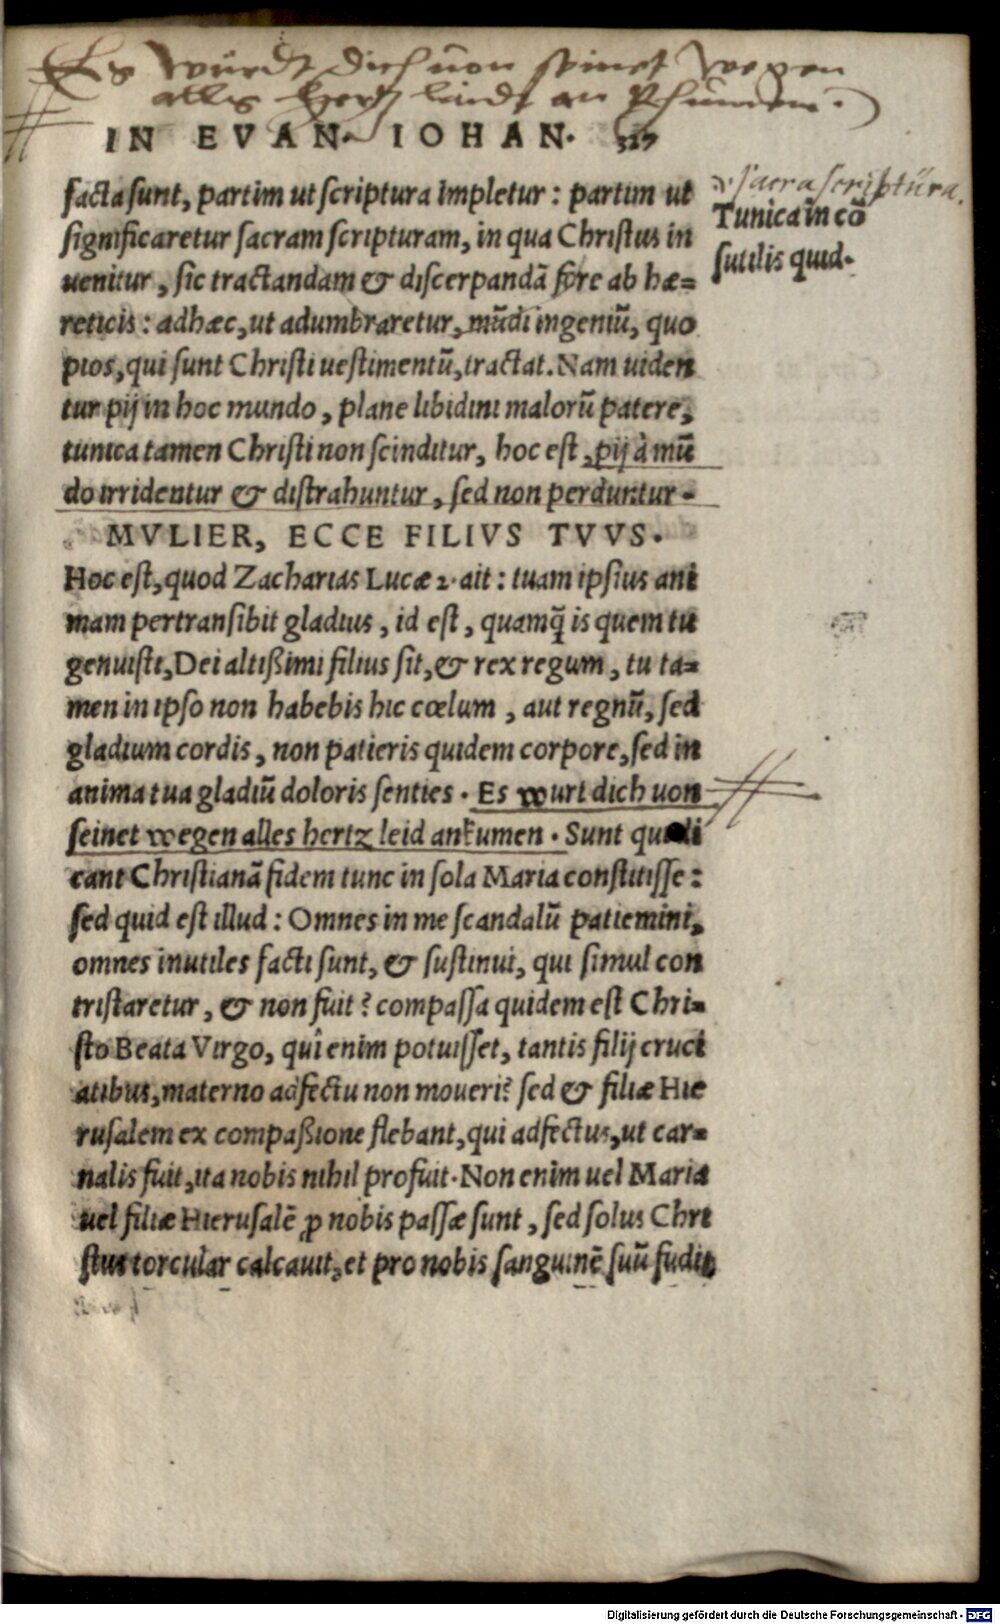 Es würdt dich uon seinet wegen
alles hertz laidt an khumen.
IN EVAN. IOHAN. 327
facta sunt, partim ut scriptura impletur: partim ut
significaretur sacram scripturam, in qua Christus in
uenitur, sic tractandam & discerpandā fore ab hæ=
reticis: adhæc, ut adumbraretur, mūdi ingeniū, quo
pios, qui sunt Christi uestimentū, tractat. Nam uiden
tur pij in hoc mundo, plane libidini malorū patere,
tunica tamen Christi non scinditur, hoc est, pij à mū
do irridentur & distrahuntur, sed non perduntur.
sacra scriptura.
Tunica in cō
sutilis quid.
MVLIER, ECCE FILIVS TVVS.
Hoc est, quod Zacharias Lucæ 2. ait: tuam ipsius ani
mam pertransibit gladius, id est, quamq̃ is quem tu
genuisti, Dei altißimi filius sit, & rex regum, tu ta=
men in ipso non habebis hic cœlum, aut regnū, sed
gladium cordis, non patieris quidem corpore, sed in
anima tua gladiū doloris senties. Es wurt dich uon
seinet wegen alles hertz leid ankumen. Sunt qui di
cant Christianā fidem tunc in sola Maria constitisse:
sed quid est illud: Omnes in me scandalū patiemini,
omnes inutiles facti sunt, & sustinui, qui simul con
tristaretur, & non fuit? compassa quidem est Chri=
sto Beata Virgo, quî enim potuisset, tantis filij cruci
atibus, materno adfectu non moueri? sed & filiæ Hie
rusalem ex compaßione flebant, qui adfectus, ut car=
nalis fuit, ita nobis nihil profuit. Non enim uel Maria
uel filiæ Hierusalē ꝓ nobis passæ sunt, sed solus Chri
stus torcular calcauit, et pro nobis sanguinē suū fudit,
Digitalisierung gefördert durch die Deutsche Forschungsgemeinschaft - DFG